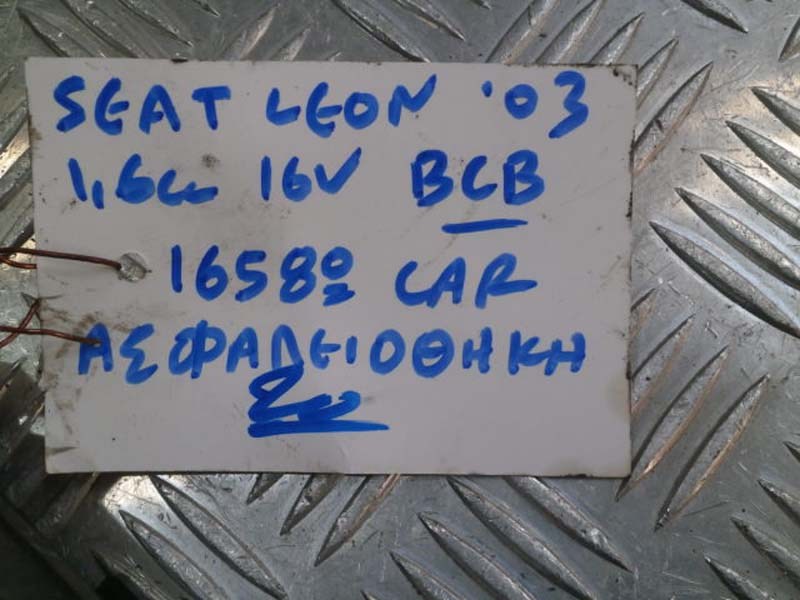 SEAT LEON '03
1,6cc 16V BCB
1658º CAR
ΑΣΦΑΛΕΙΟΘΗΚΗ